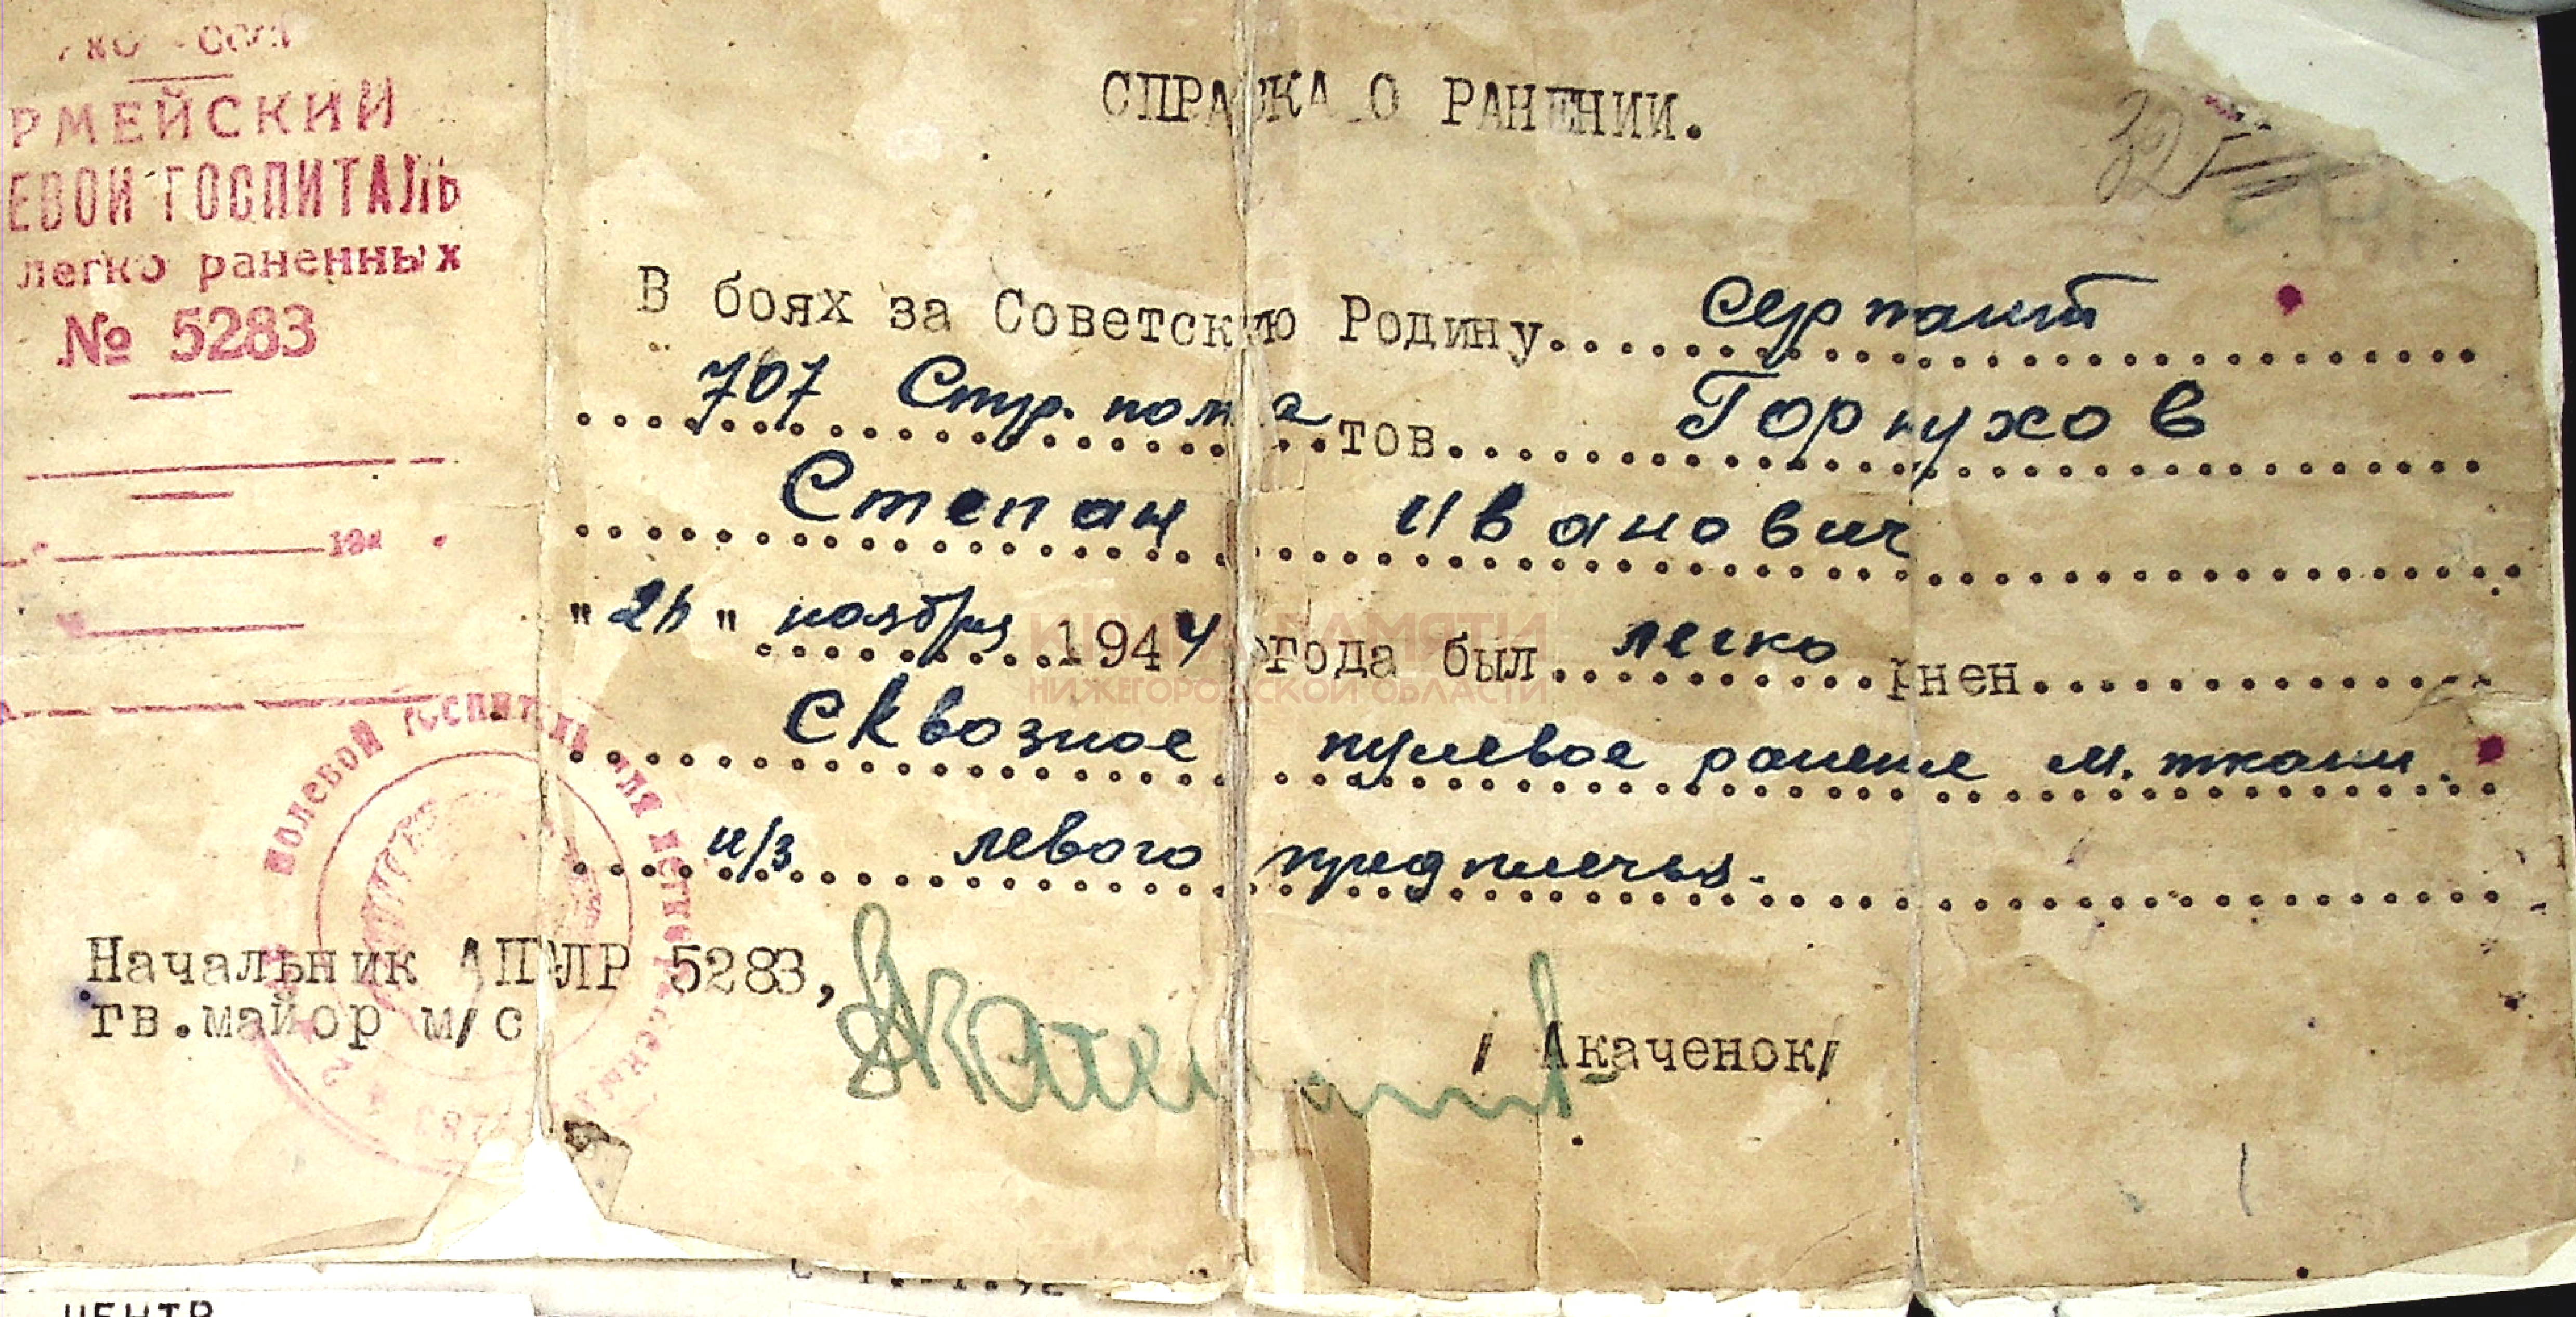 НКО - СССР
РМЕЙСКИЙ
ЕВОЙ ГОСПИТАЛЬ
легко раненных
№ 5283
194
СПРАВКА О РАНЕНИИ.
В боях за Советскую Родину сержант
707 Стр. полка тов. Горпухов
Степан Иванович
" " ноября 1944 года был легко рнен
Сквозное пулевое ранение м. ткани.
н/з левого предплечья.
ПОЛЕВОЙ ГОСПИТАЛЬ ДЛЯ ЛЕГКО РАНЕНЫХ
5283
Начальник АПГЛР 5283,
гв.майор м/с
/ Акаченок/
КНИГА ПАМЯТИ
НИЖЕГОРОДСКОЙ ОБЛАСТИ
ЦЕНТР